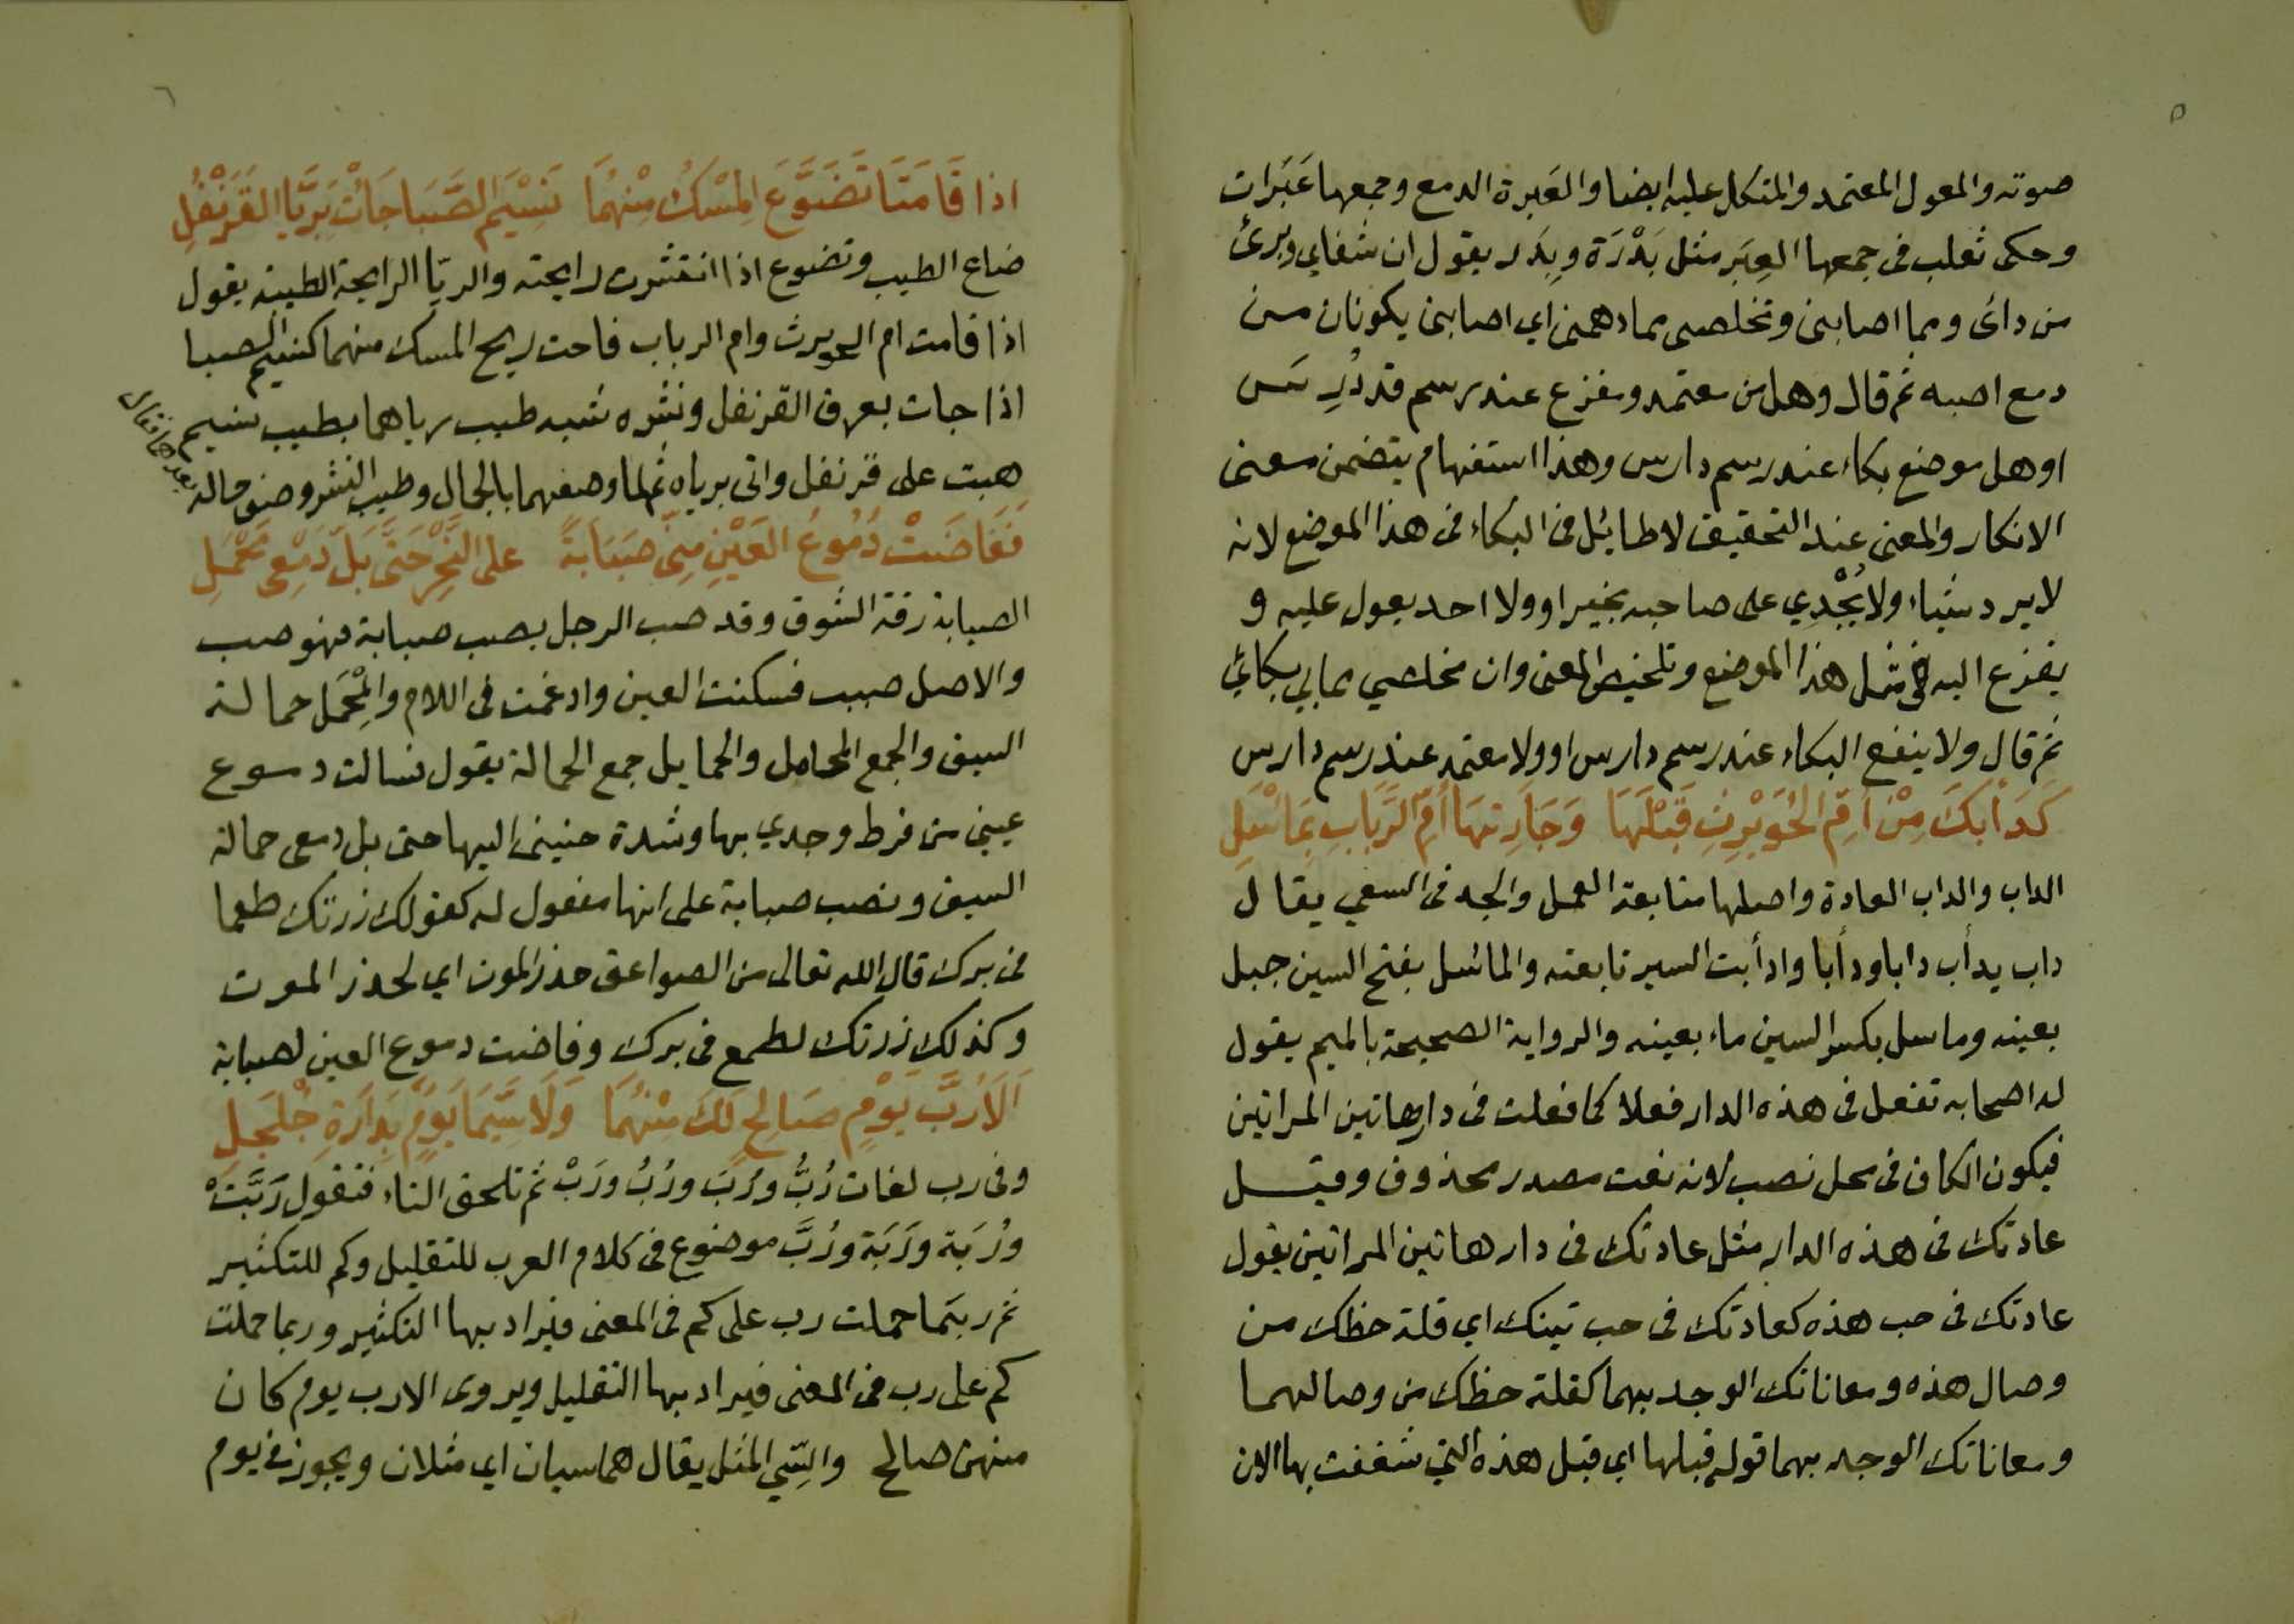 ٥
صوته والمعول المعتمد والمتكل عليه ايضا والعَبرة الدمع وجمعها عَبَرات
وحكى ثعلب فى جمعها العِبَر مثل بَدْرَة وبِدَر يقول ان شفاي وبرئ
من دائى ومما اصابنى وتخلصى مما دهمنى اي اصابنى يكونان من
دمع اصبه ثم قال وهل من معتمد ومفزع عند رسم قد دُرِس
او هل موضع بكاء عند رسم دارس وهذا استفهام يتضمن معنى
الانكار والمعنى عند التحقيق لا طائل فى البكاء فى هذا الموضع لانه
لا يرد شياء ولا يُجْدِي على صاحبه بخير او ولا احد يعول عليه و
يفزع اليه فى مثل هذا الموضع وتلخيص المعنى وان مخلصي مما بي بكائي
ثم قال ولا ينفع البكاء عند رسم دارس او ولا معتمد عند رسم دارس
كَدَأبِكَ مِنْ اُمِّ الحُوَيْرِثِ قَبْلَهَا وَجَارَتِهَا أُمِّ الرَّبَابِ بِمَاسَلِ
الداب والداب العادة واصلها متابعة العمل والجد فى السعي يقال
داب يدأب دابا ودأبا وادأبت السير تابعته والماسل بفتح السين جبل
بعينه وماسل بكسر السين ماء بعينه والرواية الصحيحة بالميم يقول
له اصحابه تفعل فى هذه الدار فعلا كما فعلت فى دار هاتين المراتين
فيكون الكاف فى محل نصب لانه نعت مصدر محذوف وقيل
عادتك فى هذه الدار مثل عادتك فى دار هاتين المراتين يقول
عادتك فى حب هذه كعادتك فى حب تينك اي قلة حظك من
وصال هذه ومعاناتك الوجد بهما كقلة حظك من وصالهما
ومعاناتك الوجد بهما قوله قبلها اي قبل هذه التي شغفت بها الان
٦
اذا قَامَتَا تَضَوَّعَ المِسْكُ مِنْهُمَا نَسِيْمَ الصَّبَا جَائَتْ بَرَيَّا القَرَنْفُلِ
ضاع الطيب وتضوع اذا انتشرت رايحته والريّا الرايحة الطيبة يقول
اذا قامت ام الحويرث وام الرباب فاحت ريح المسك منهما كنسيم الصبا
اذا جات بعرف القرنفل ونشره شبه طيب رياهما بطيب نسيم
هبت على قرنفل واتى برياه ثم لما وصفهما بالجمال وطيب النشر وصف حاله
بعدهما فقال
فَفَاضَتْ دُمُوعُ العَيْنِ مِنِّى صَبَابَةً على النَّحْرِ حَتَّى بَلَّ دَمْعِى مَحْمَلِ
الصبابة رقة الشوق وقد صب الرجل يصب صبابة فهو صب
والاصل صبب فسكنت العين وادغمت فى اللام والمِحْمَل حمالة
السيف والجمع المحامل والحمايل جمع الحمالة يقول فسالت دموع
عينى من فرط وجدي بها وشدة حنينى اليها حتى بل دمعى حمالة
السيف ونصب صبابة على انها مفعول له كقولك زرتك طمعا
فى برك قال الله تعالى من الصواعق حذر الموت اي لحذر الموت
وكذلك زرتك لطمع فى برك وفاضت دموع العين لصبابة
اَلَا رُبَّ يَوْمٍ صَالِحٍ لَكَ مِنْهُمَا وَلَا سِيَّمَا يَوْمٌ بِدَارَةِ جُلْجُلِ
وفى رب لغات رُبُّ ورُبَ ورُبُ ورَبْ ثم تلحق التاء فتقول رَبَّتَ
ورُبَة ورَبَة ورُبَّ موضوع فى كلام العرب للتقليل وكم للتكثير
ثم ربّما حملت رب على كم فى المعنى فيراد بها التكثير وربما حملت
كم على رب فى المعنى فيراد بها التقليل ويروى الا رب يوم كان
منهن صالح والسِّي المثل يقال هما سيان اي مثلان ويجوز فى يوم